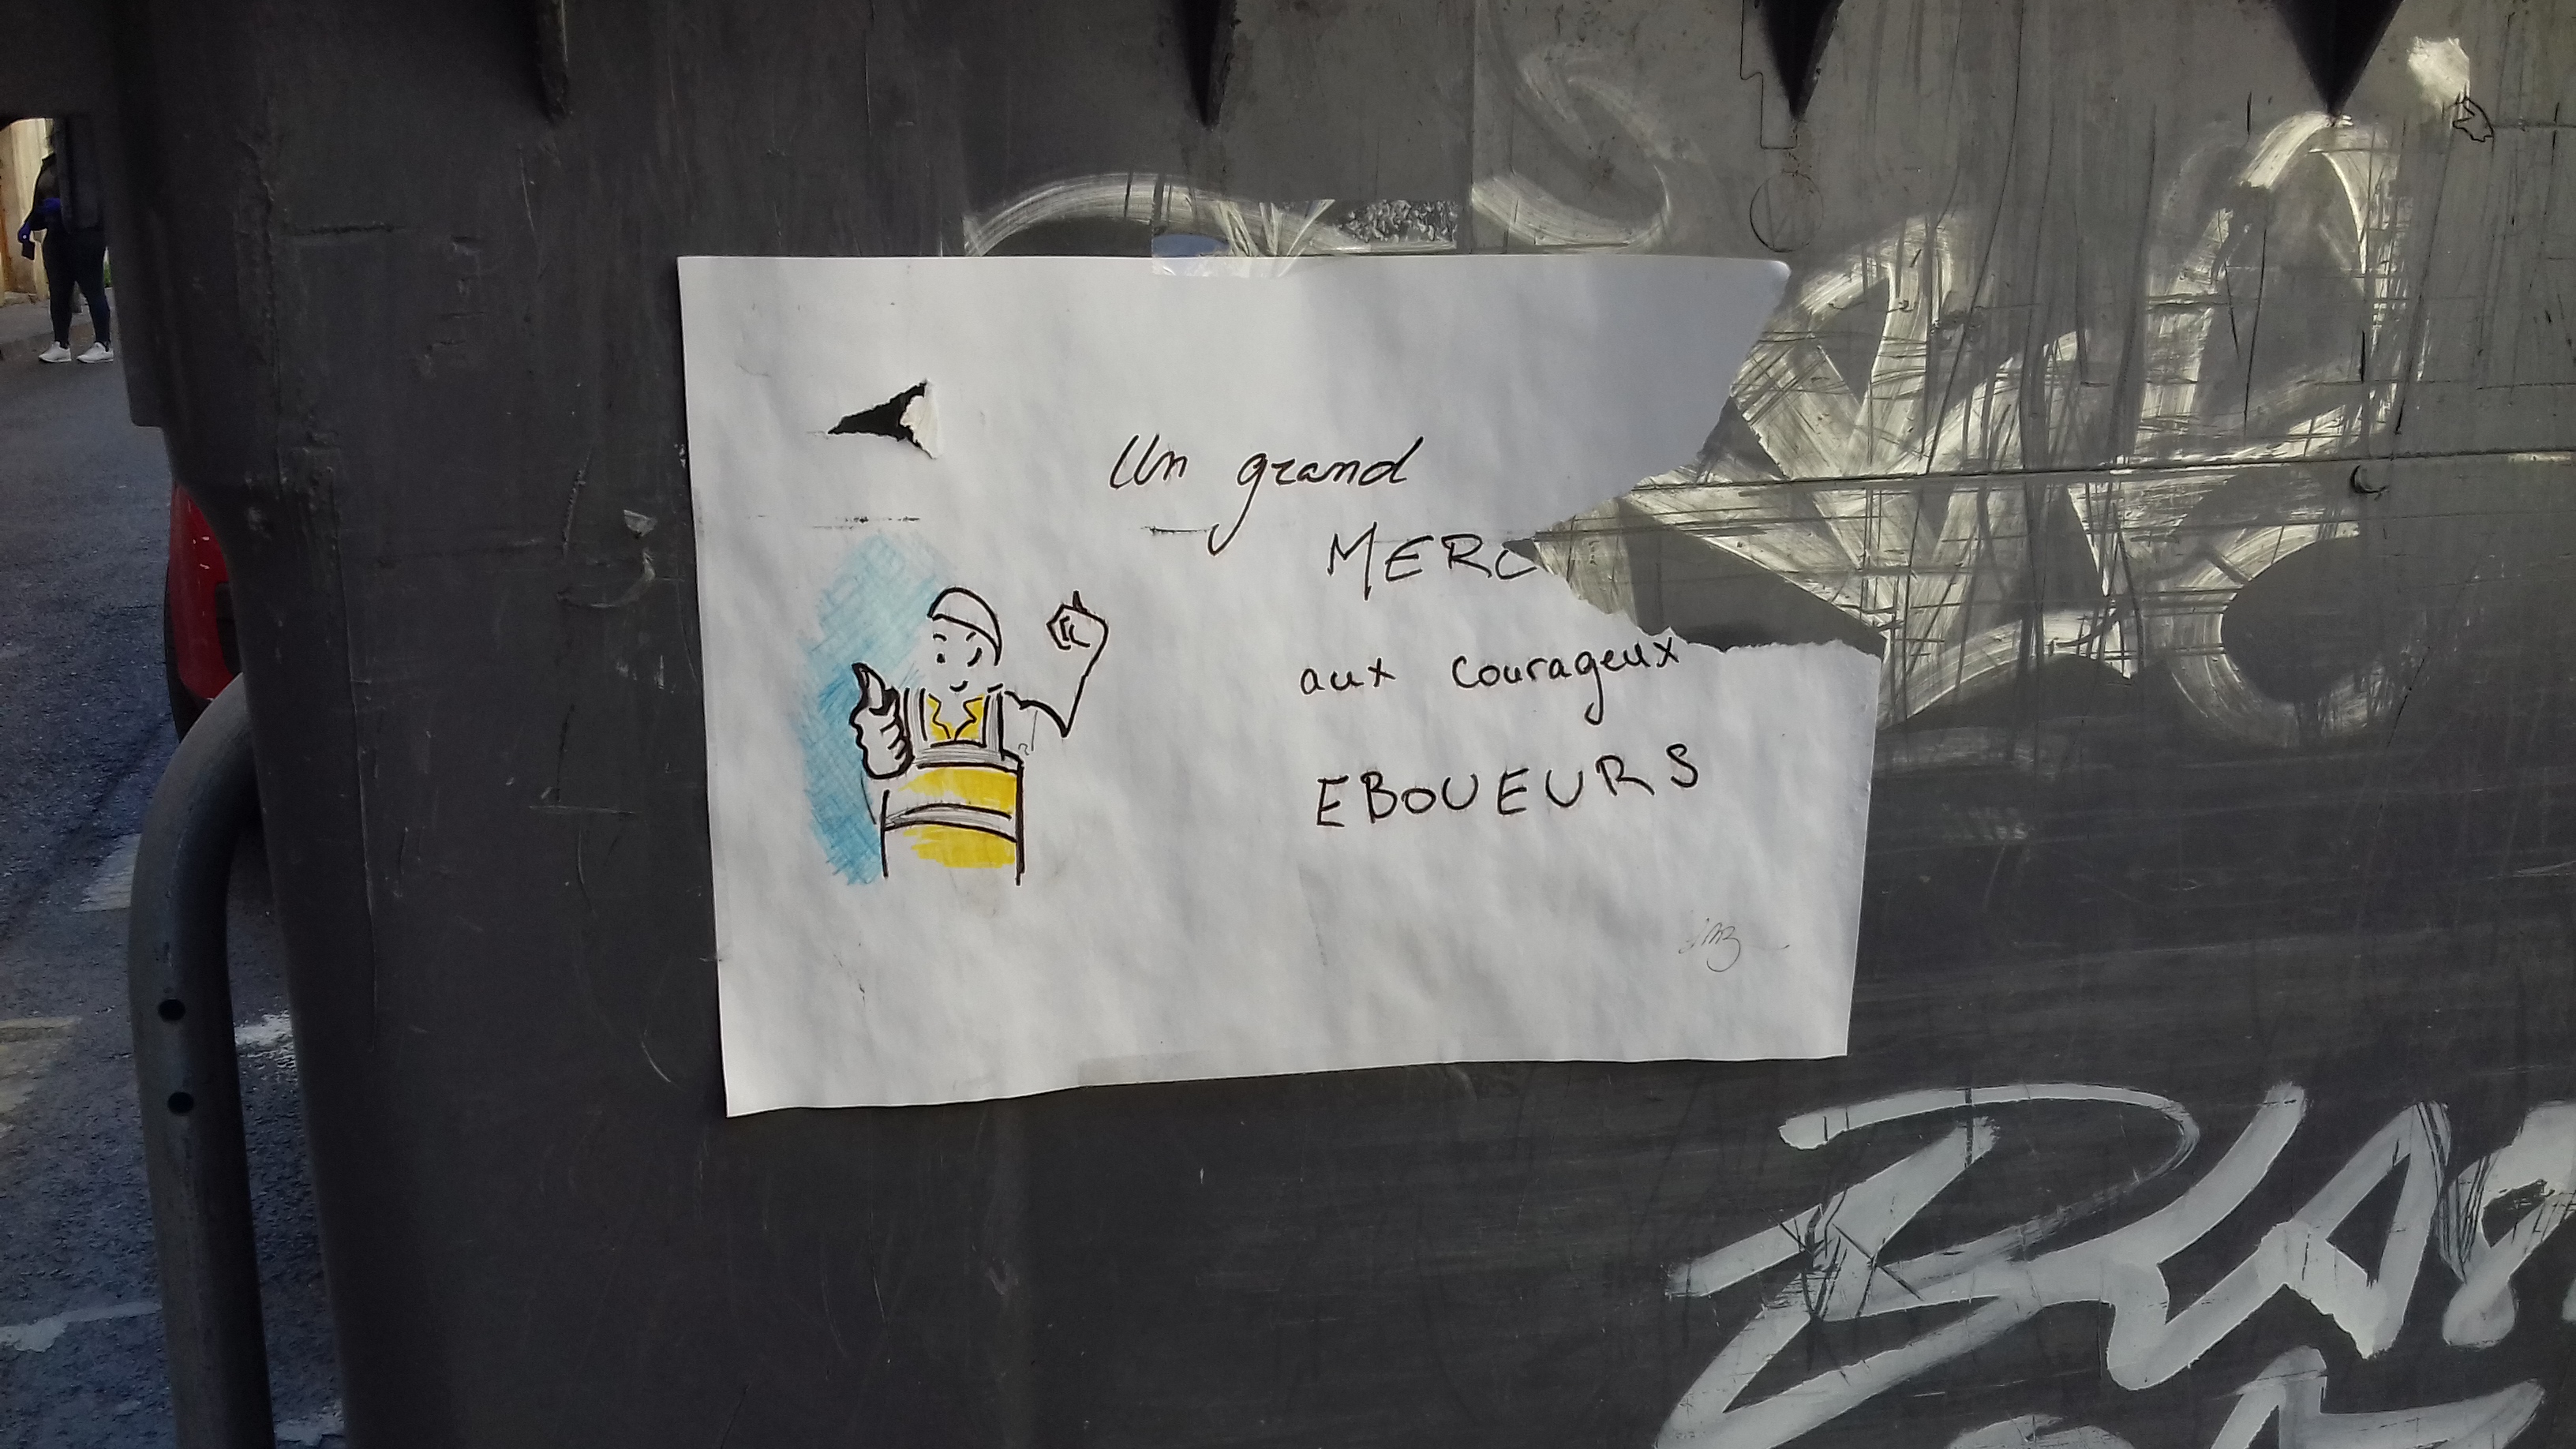 Un grand
MERC
aux courageux
EBOUEURS